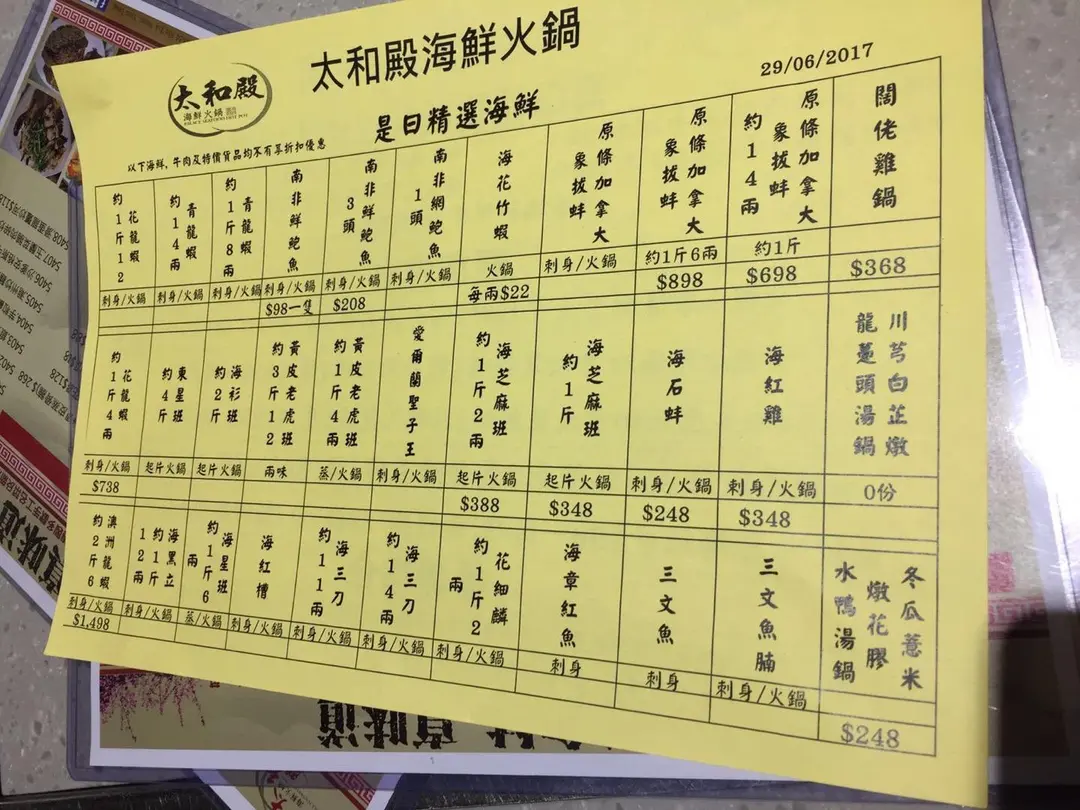 太和殿海鮮火鍋
29/06/2017
太和殿
海鮮火鍋
PALACE SEAFOOD HOT POT
是日精選海鮮
以下海鮮,牛肉及特價貨品均不有享折扣優惠
花龍蝦
約1斤12
青龍蝦
約14兩
青龍蝦
約1斤8兩
南非鮮鮑魚
南非鮮鮑魚
3頭
南非網鮑魚
1頭
海花竹蝦
原條加拿大
象拔蚌
原條加拿大
象拔蚌
原條加拿大
象拔蚌
約14兩
闊佬雞鍋
刺身/火鍋
刺身/火鍋
刺身/火鍋
刺身/火鍋
刺身/火鍋
刺身/火鍋
火鍋
刺身/火鍋
約1斤6兩
約1斤
$98一隻
$208
每兩$22
$898
$698
$368
花龍蝦
約1斤4兩
東星班
約4斤
海衫班
約2斤
黃皮老虎班
約3斤12
黃皮老虎班
約1斤4兩
愛爾蘭聖子王
海芝麻班
約1斤2兩
海芝麻班
約1斤
海石蚌
海紅雞
川芎白芷燉
龍躉頭湯鍋
刺身/火鍋
起片火鍋
起片火鍋
兩味
蒸/火鍋
刺身/火鍋
起片火鍋
起片火鍋
刺身/火鍋
刺身/火鍋
0份
$738
$388
$348
$248
$348
澳洲龍蝦
約2斤6
海黑立
約1斤
12兩
海星班
約1斤6
兩
海紅槽
海三刀
約11兩
海三刀
約14兩
花細鱗
約1斤2
兩
海章紅魚
三文魚
三文魚腩
冬瓜薏米
燉花膠
水鴨湯鍋
刺身/火鍋
刺身/火鍋
蒸/火鍋
刺身/火鍋
刺身/火鍋
刺身/火鍋
刺身/火鍋
刺身
刺身
刺身/火鍋
$1,498
$248